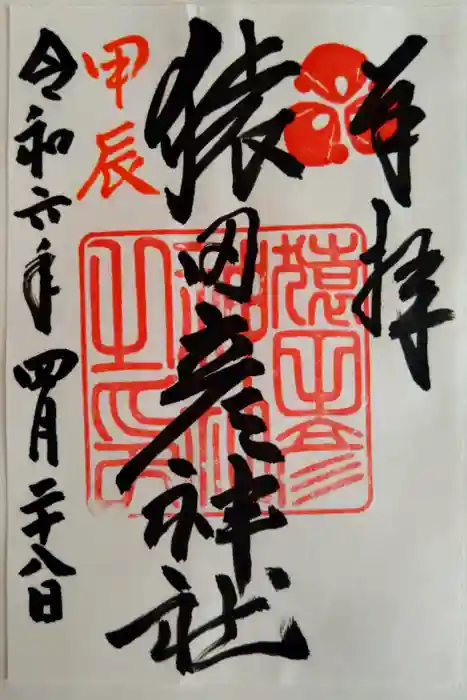 奉拝
猿田彦神社
甲辰
令和六年四月二十八日
猿田彦
神社
之印